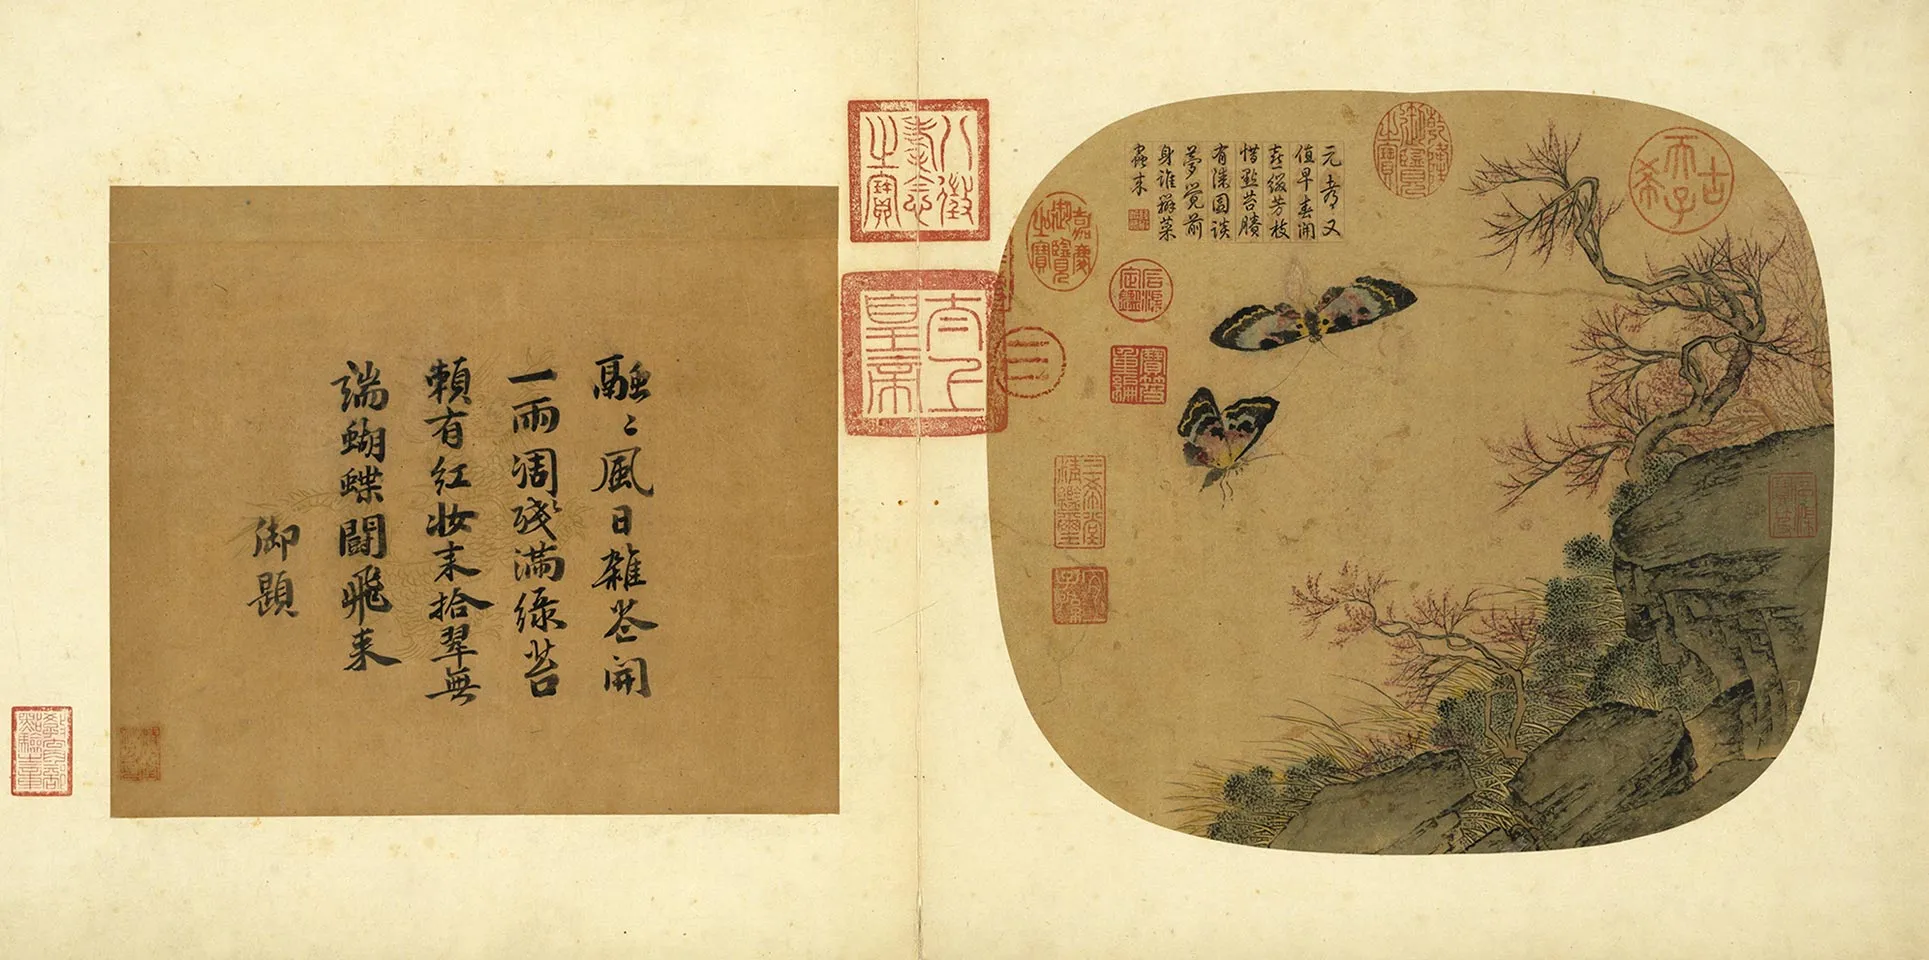 古希天子
乾隆御覽之寶
元都又
值早春開
喜綴芳枝
惜點苔賸
有漆園談
夢覺前
身誰辨菜
蟲來
嘉慶御覽之寶
石渠定鑑
寶笈重編
石渠寶笈
三希堂精鑑璽
宜子孫
三
八徵耄念之寶
太上皇帝
融〻風日雜花開
一雨凋殘滿綠苔
賴有紅妝來拾翠無
端蝴蝶鬪飛來
御題
教育部點驗之章